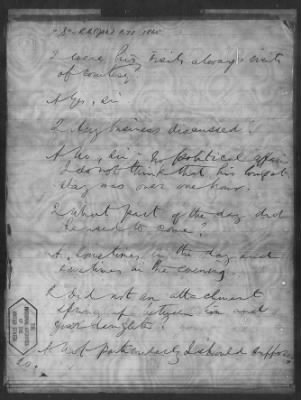 Q were his visits always visits
of courtesy?
A Yes, Sir.
Q Any business discussed?
A No, Sir, no political affairs
I do not think that his longest
stay was over one hour.
Q What part of the day did
he used to come?
A. Sometimes in the day and
sometimes in the evening.
Q Did not an attachment
spring up between him and
your daughter?
A Not particularly I should suppose
THE
NATIONAL
ARCHIVES